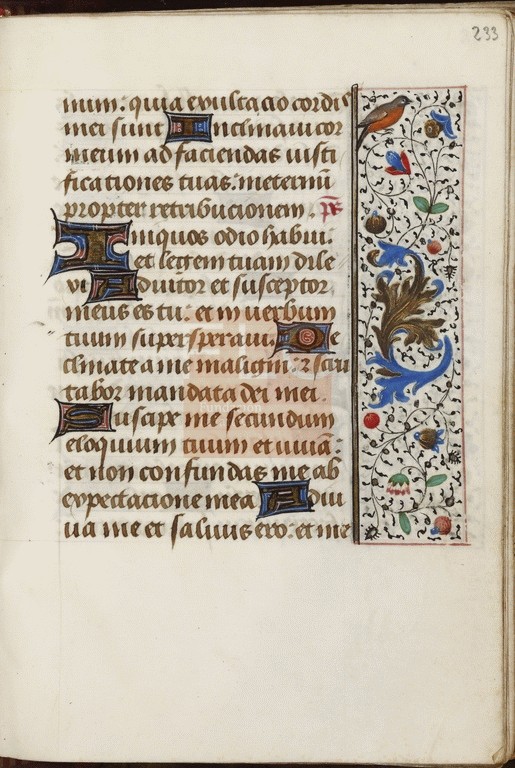 233
num: quia exultacio cordis
mei sunt Inclinaui cor
meum ad faciendas iusti
ficationes tuas: ineternū
propter retribucionem. ps
Iniquos odio habui:
et legem tuam dile
xi Adiutor et susceptor
meus es tu: et in uerbum
tuum supersperaui. De
clinate a me maligni: ⁊ scru
tabor mandata dei mei.
Suscipe me secundum
eloquium tuum et uiuā:
et non confundas me ab
expectacione mea Adiu
ua me et saluus ero: et me